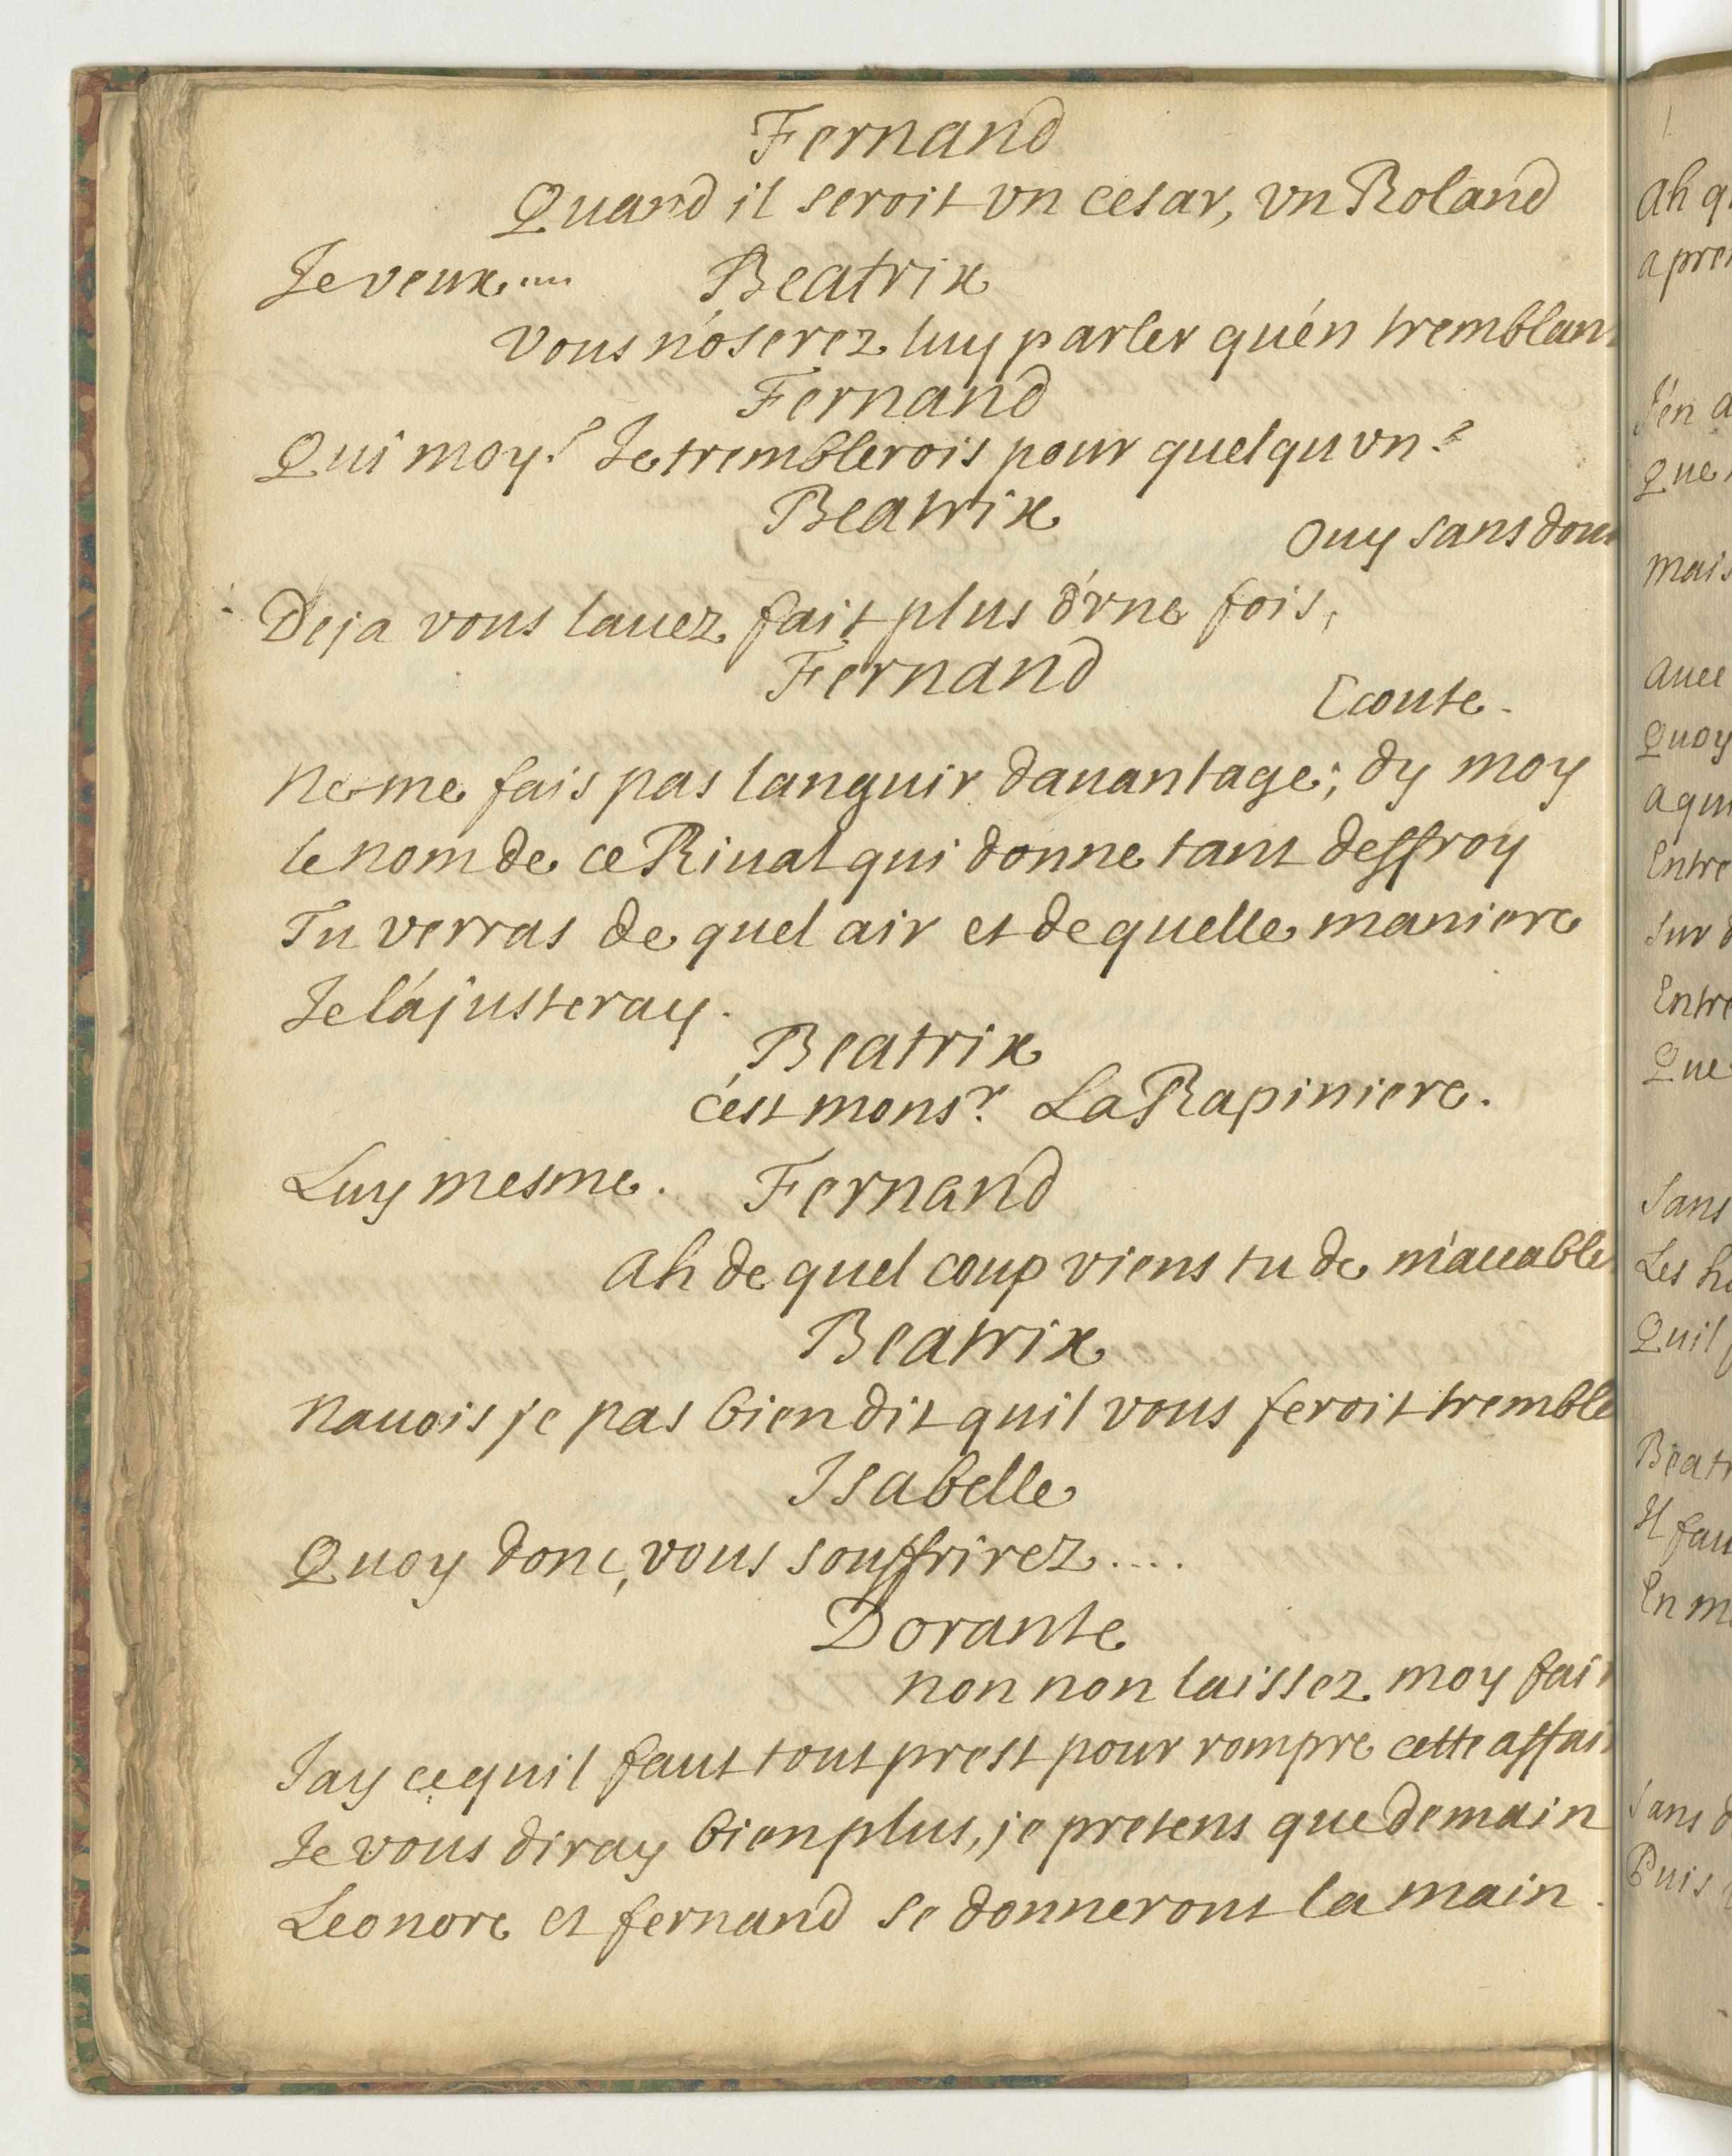 Fernand
Quand il seroit vn cesar, vn Roland
Je veux....
Beatrix
vous n'oserez luy parler qu'en tremblan
Fernand
Qui moy? Je tremblerois pour quelqu vn?
Beatrix
Ouy sans dou
Deja vous lauez fait plus d'vne fois,
Fernand
Ecoute.
ne me fais pas languir dauantage; dy moy
le nom de ce Riual qui donne tant deffroy
Tu verras de quel air et de quelle maniere
Je l'ajusteray.
Beatrix
c'est monsr. La Rapiniere.
Luy mesme.
Fernand
Ah de quel coup viens tu de m'accable
Beatrix
Nauois je pas bien dit quil vous feroit tremble
Isabelle
Quoy donc, vous souffrirez....
Dorante
non non laissez moy fai
Jay ce quil faut tout prest pour rompre cette affai
Je vous diray bien plus, je pretens que demain
Leonore et fernand se donneront la main.
Ah q
apre
J'en a
Que
mais
auec
Quoy
a qui
Entre
sur d
Entre
Que
Sans
Les h
Quil
Beat
Il fau
En m
Sans d
Puis